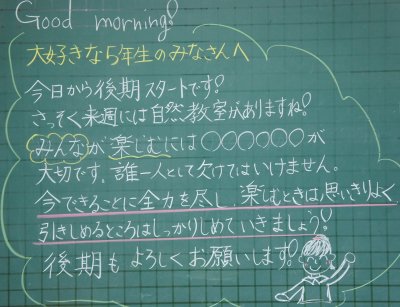 Good morning!
大好きな5年生のみなさんへ
今日から後期スタートです!
さっそく来週には自然教室がありますね!
みんなが楽しむには○○○○○○が
大切です。誰一人として欠けてはいけません。
今できることに全力を尽し、楽しむときは思いきりよく
引きしめるところはしっかりしめていきましょう!
後期もよろしくお願いします!